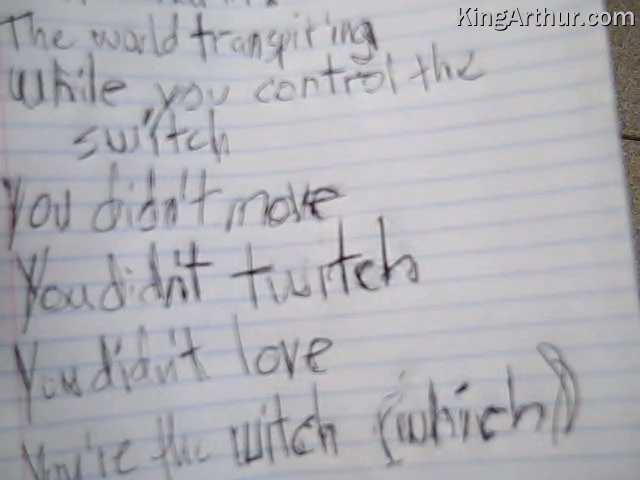 KingArthur.com
The world transpiring
While you control the
switch
You didn't move
You didn't twitch
You didn't love
You're the witch (which)